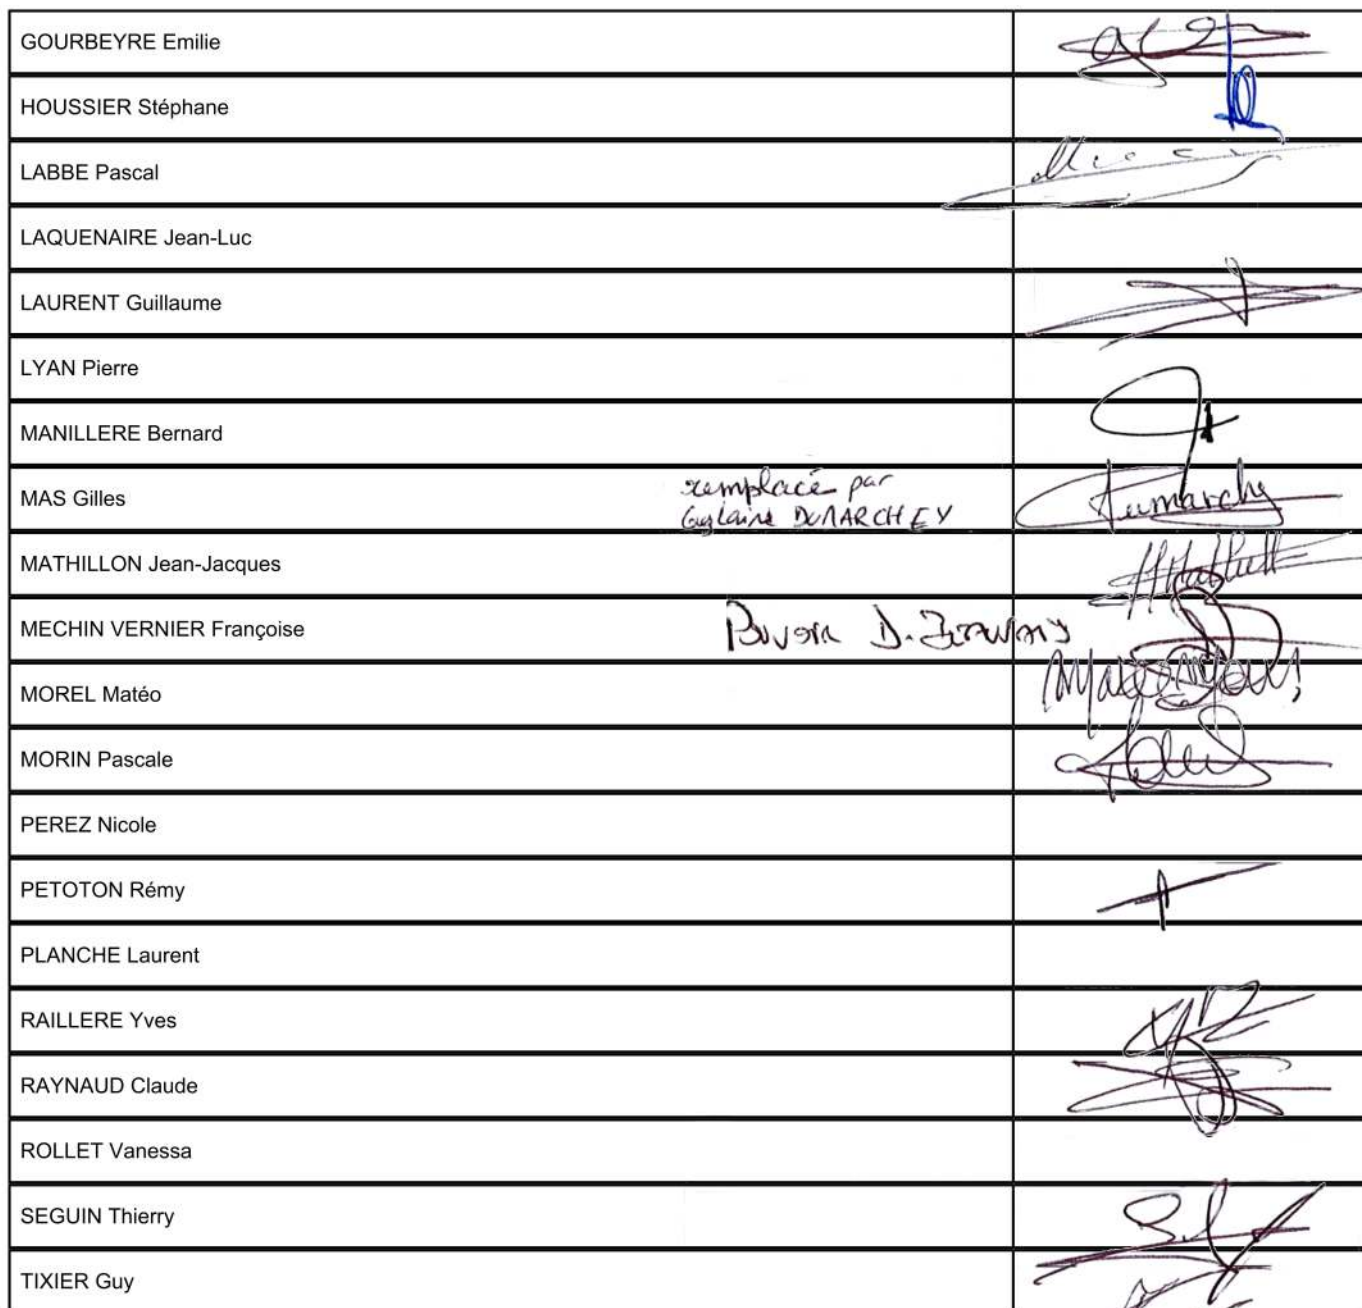 GOURBEYRE Emilie
HOUSSIER Stéphane
LABBE Pascal
LAQUENAIRE Jean-Luc
LAURENT Guillaume
LYAN Pierre
MANILLERE Bernard
MAS Gilles
remplacé par
DUMARCHEY
Dumarchey
MATHILLON Jean-Jacques
MECHIN VERNIER Françoise
Pouvoir D.
MOREL Matéo
MORIN Pascale
PEREZ Nicole
PETOTON Rémy
PLANCHE Laurent
RAILLERE Yves
RAYNAUD Claude
ROLLET Vanessa
SEGUIN Thierry
TIXIER Guy